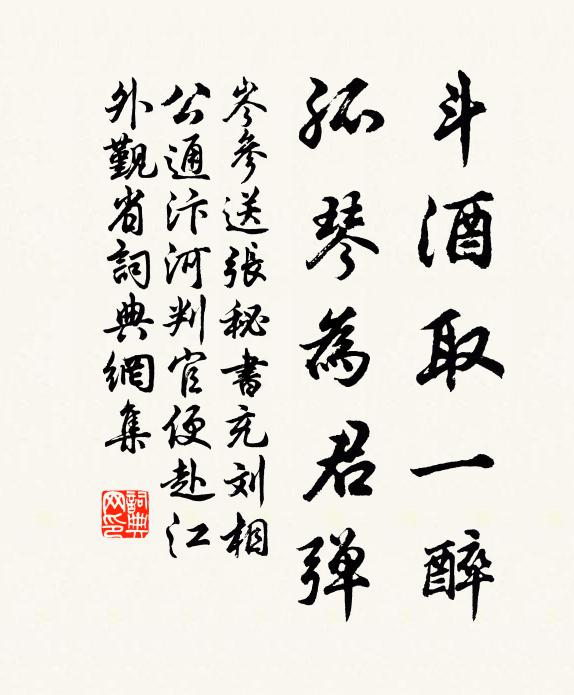 斗酒取一醉
孤琴為君弹
岑參送張秘書充刘相
公通汴河判官便赴江
外觐省詞典網集
詞典
网印